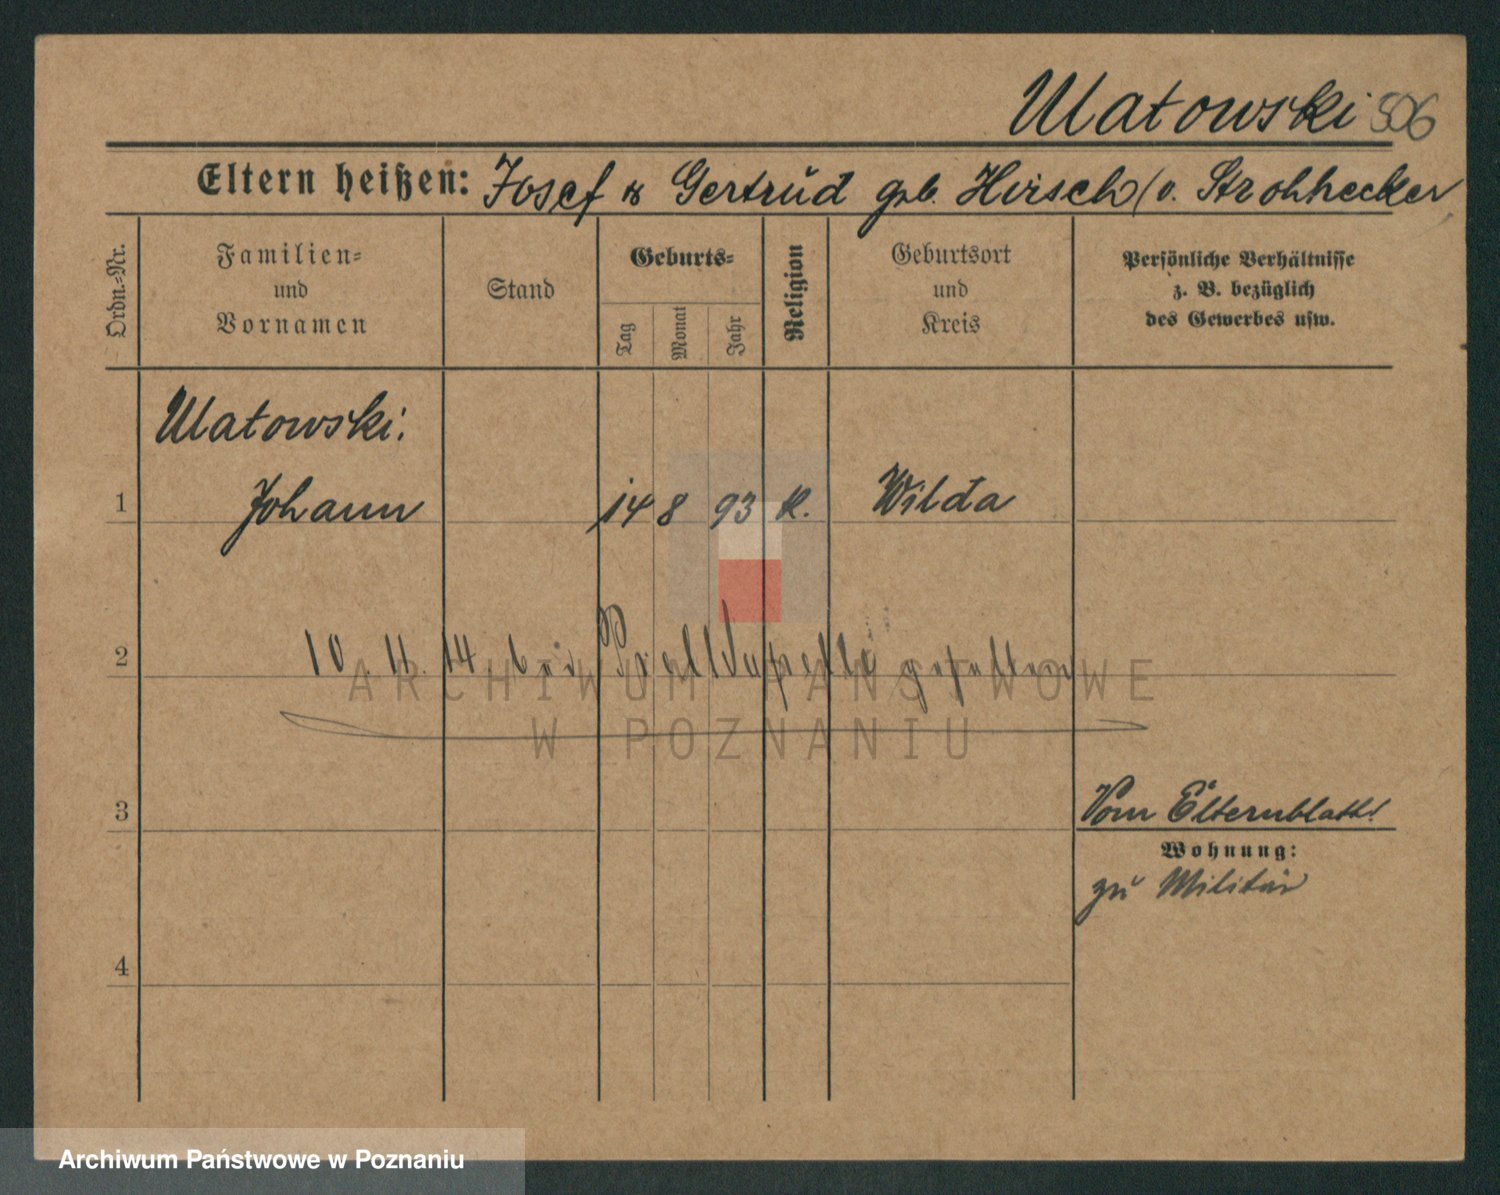 Ulatowski 506
Eltern heißen: Josef & Gertrud geb. Hirsch (v. Strohhecker
Ordn.-Nr.
Familien-
und
Vornamen
Stand
Geburts-
Tag
Monat
Jahr
Religion
Geburtsort
und
Kreis
Persönliche Verhältnisse
z. B. bezüglich
des Gewerbes usw.
Ulatowski.
1 Johann 14 8 93 K. Wilda
2 10. 11. 14 bei gefallen
ARCHIWUM PAŃSTWOWE
W POZNANIU
3 Vom Elternblatt!
Wohnung:
zu Militär
4
Archiwum Państwowe w Poznaniu